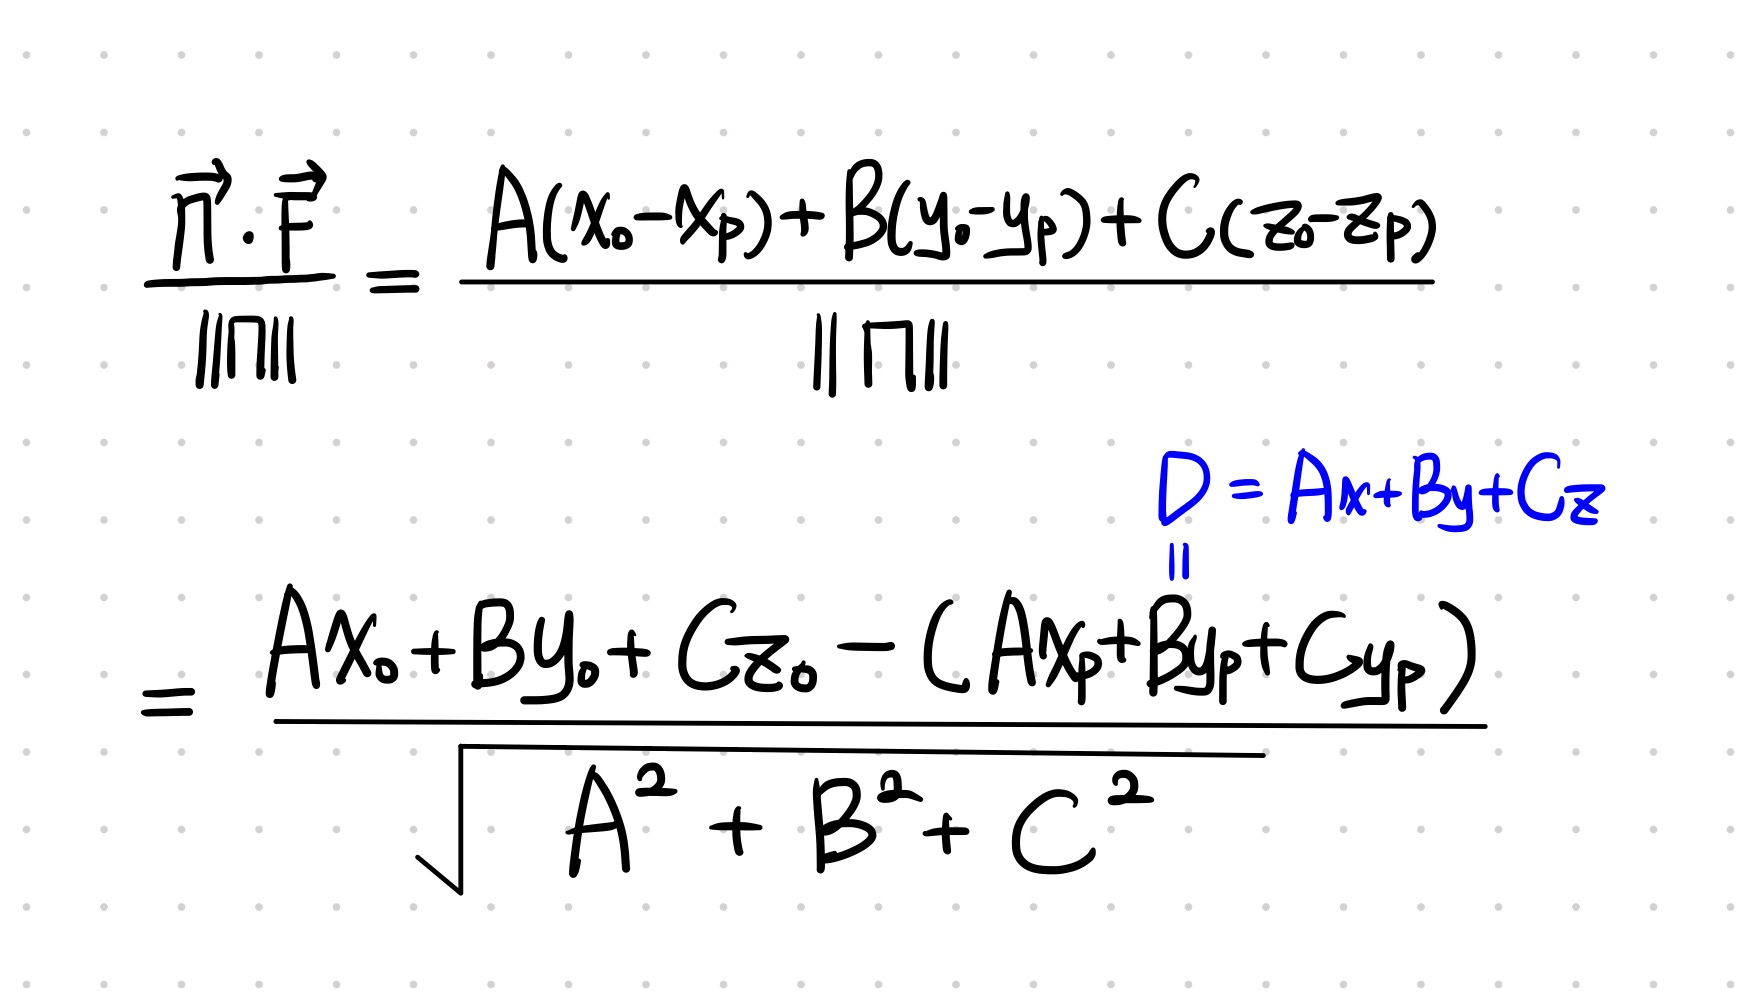 n⃗ · F⃗ / ‖n‖ = A(x₀-xₚ) + B(y₀-yₚ) + C(z₀-zₚ) / ‖n‖
D = Ax+By+Cz
=
= Ax₀ + By₀ + Cz₀ - (Axₚ+Byₚ+Cyₚ) / √A² + B² + C²